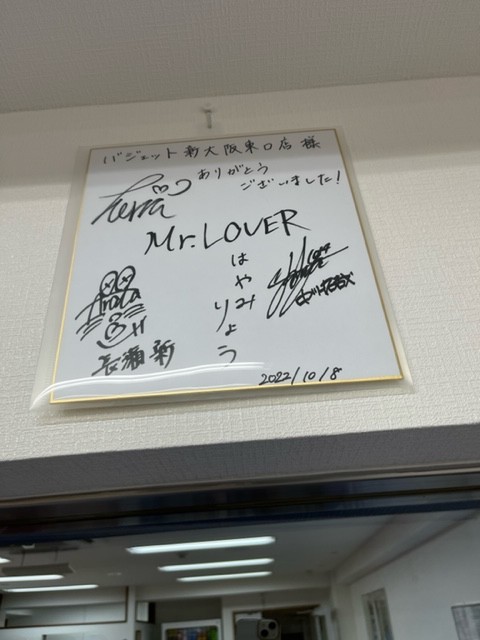 バジェット新大阪東口店様
ありがとう
ございました!
Mr.LOVER
はやみりょう
Arata
長瀬新
2022/10/8